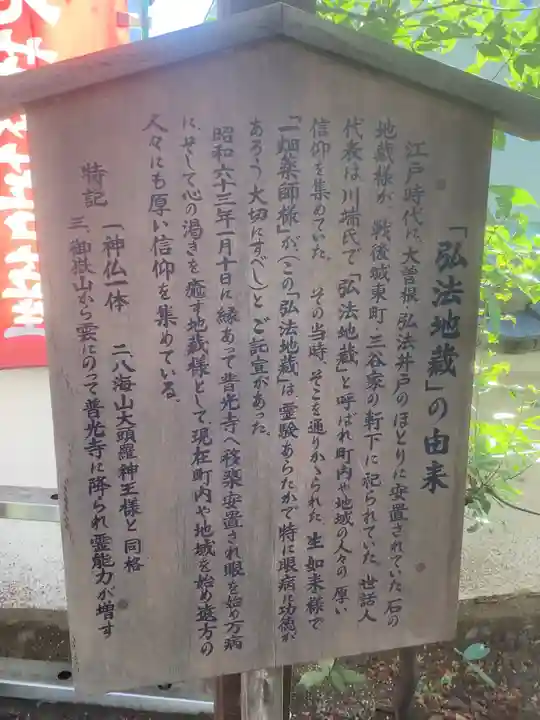 「弘法地蔵」の由来
江戸時代に、大曽根弘法井戸のほとりに安置されていた石の
地蔵様が、戦後城東町・三谷家の軒下に祀られていた。世話人
代表は川端氏で「弘法地蔵」と呼ばれ町内や地域の人々の厚い
信仰を集めていた。その当時、そこを通りかゝられた生如来様で
「一畑薬師様」が、(この「弘法地蔵」は、霊験あらたかで特に眼病に功徳が
あろう、大切にすべし)とご託宣があった。
昭和六十三年一月十日に縁あって普光寺へ移築・安置され眼を始め万病
に、そして心の渇きを癒す地蔵様として、現在町内や地域を始め遠方の
人々にも厚い信仰を集めている。
特記
一、神仏一体 二、八海山大頭羅神王様と同格
三、御嶽山から雲にのって普光寺に降られ霊能力が増す